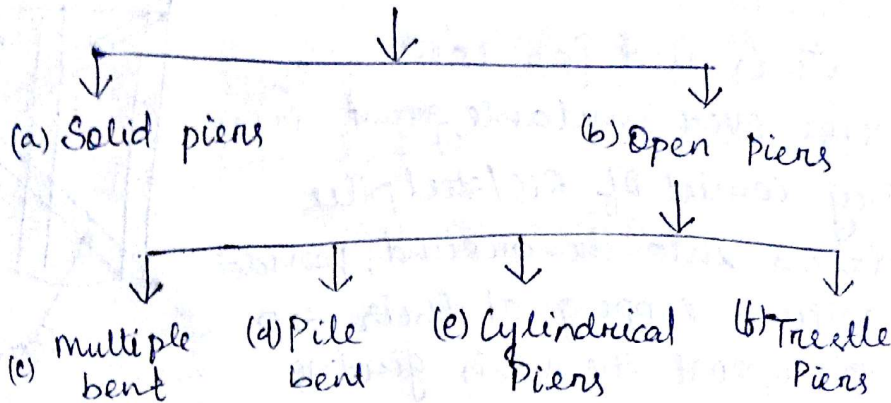 (a) Solid piers
(b) Open Piers
(c) Multiple bent
(d) Pile bent
(e) Cylindrical Piers
(f) Trestle Piers